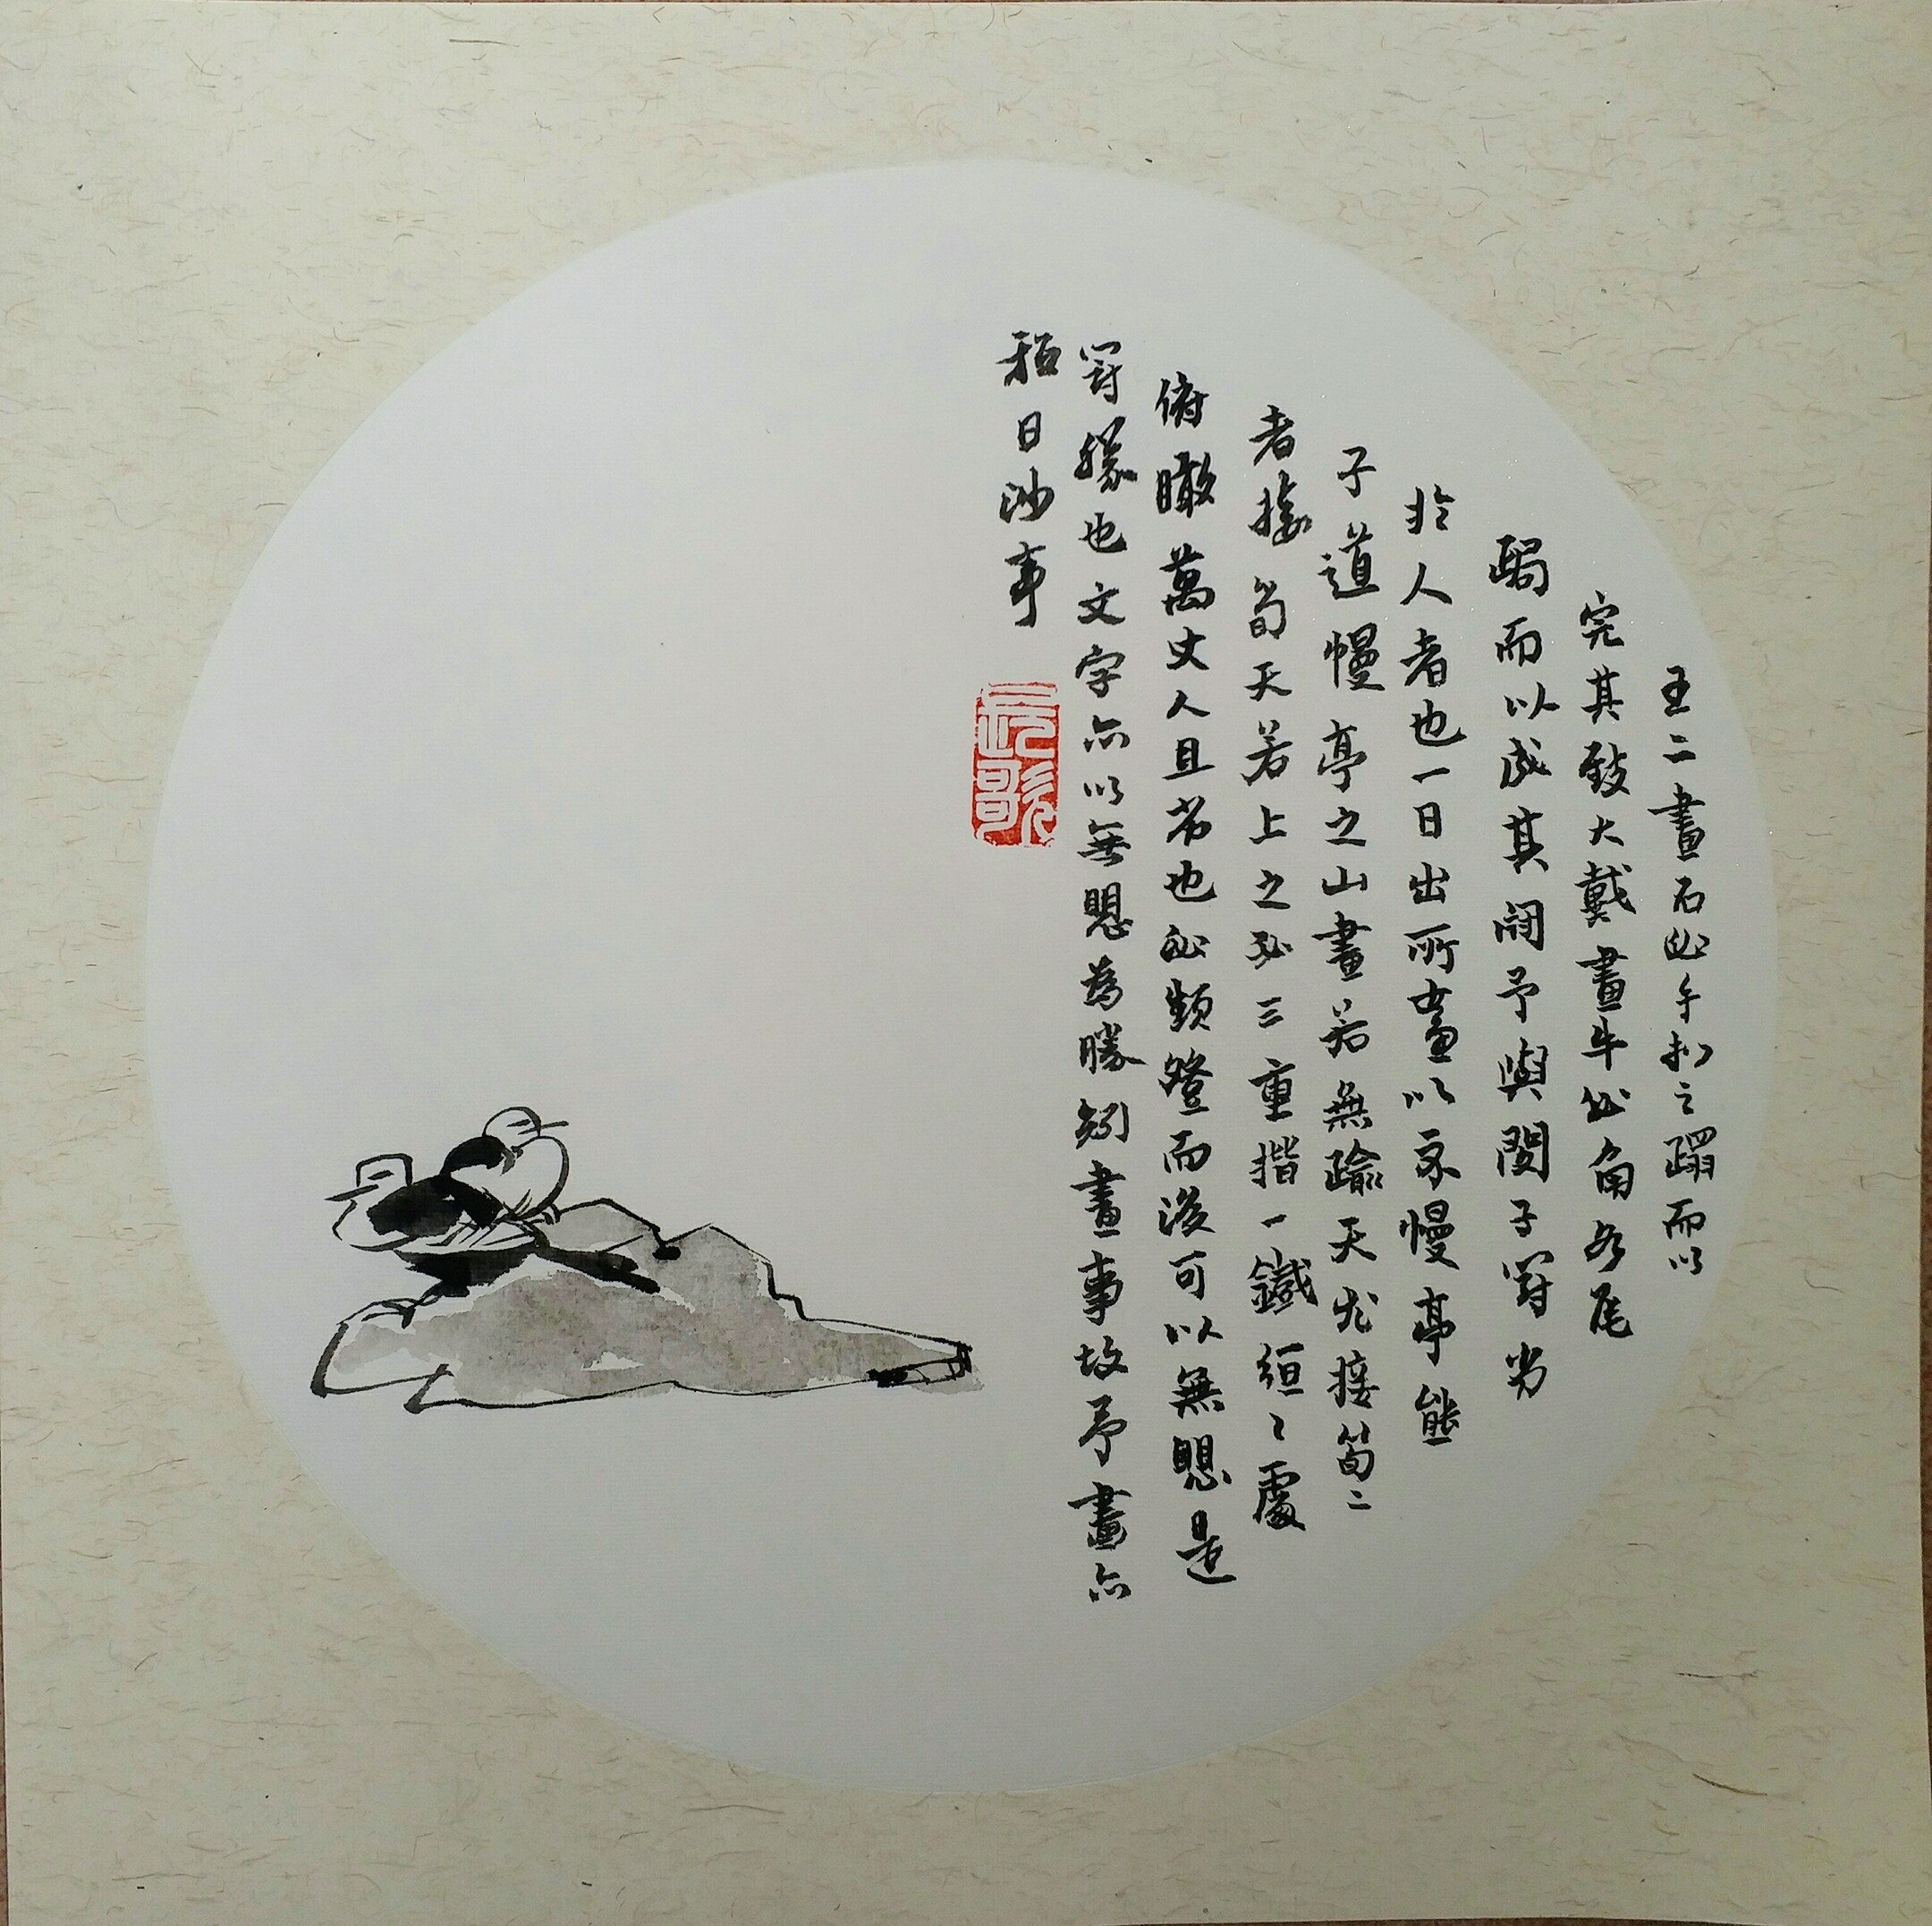 王二畫石必手扣之蹋而以
完其致大戴畫牛必角而尾
而以成其闘予與閔子
於人者也一日出所畫以示慢亭熊
子道慢亭之山畫若無踰天尤接筍二
者接筍天若上之必三重揩一鐵絙之處
俯瞰萬丈人且劣也必類登而後可以無思是
勝也文字亦以無思為勝矧畫事故予畫亦
日涉事
長歌